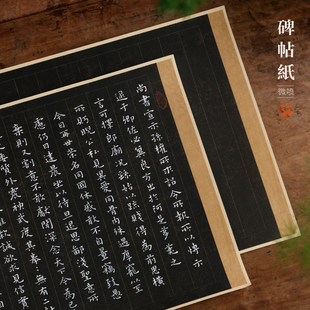 碑帖紙
微噴
尚書宣示孫權所求詔令所報所以博示
逮于卿佐必冀良方出於阿是芻蕘之
言可擇郎廟況繇始以疏賤得為前恩橫
所盱睨公私見異愛同骨肉殊遇厚寵以至
今日再世榮名同國休戚敢不自量竊致愚
慮仍日達晨坐以待旦退思鄙淺聖意所
棄則又割意不敢獻聞深念天下今為已
委質外震神武度其拳拳無有二計
誠欲求見信實